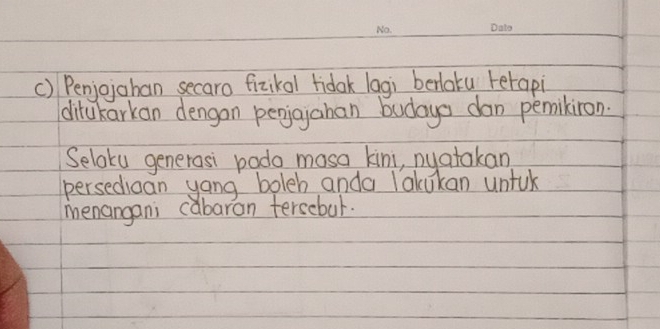 No.
Date
c) Penjajahan secara fizikal tidak lagi berlaku tetapi
ditukarkan dengan penjajahan budaya dan pemikiran.
Selaku generasi pada masa kini, nyatakan
persediaan yang boleh anda lakukan untuk
menangani cabaran tersebut.